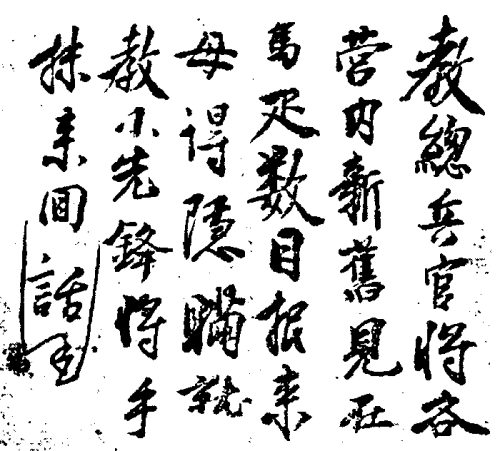 教總兵官將各
营内新舊見在
馬疋数目报来
母得隱瞞就
教小先鋒將手
抹来囬話